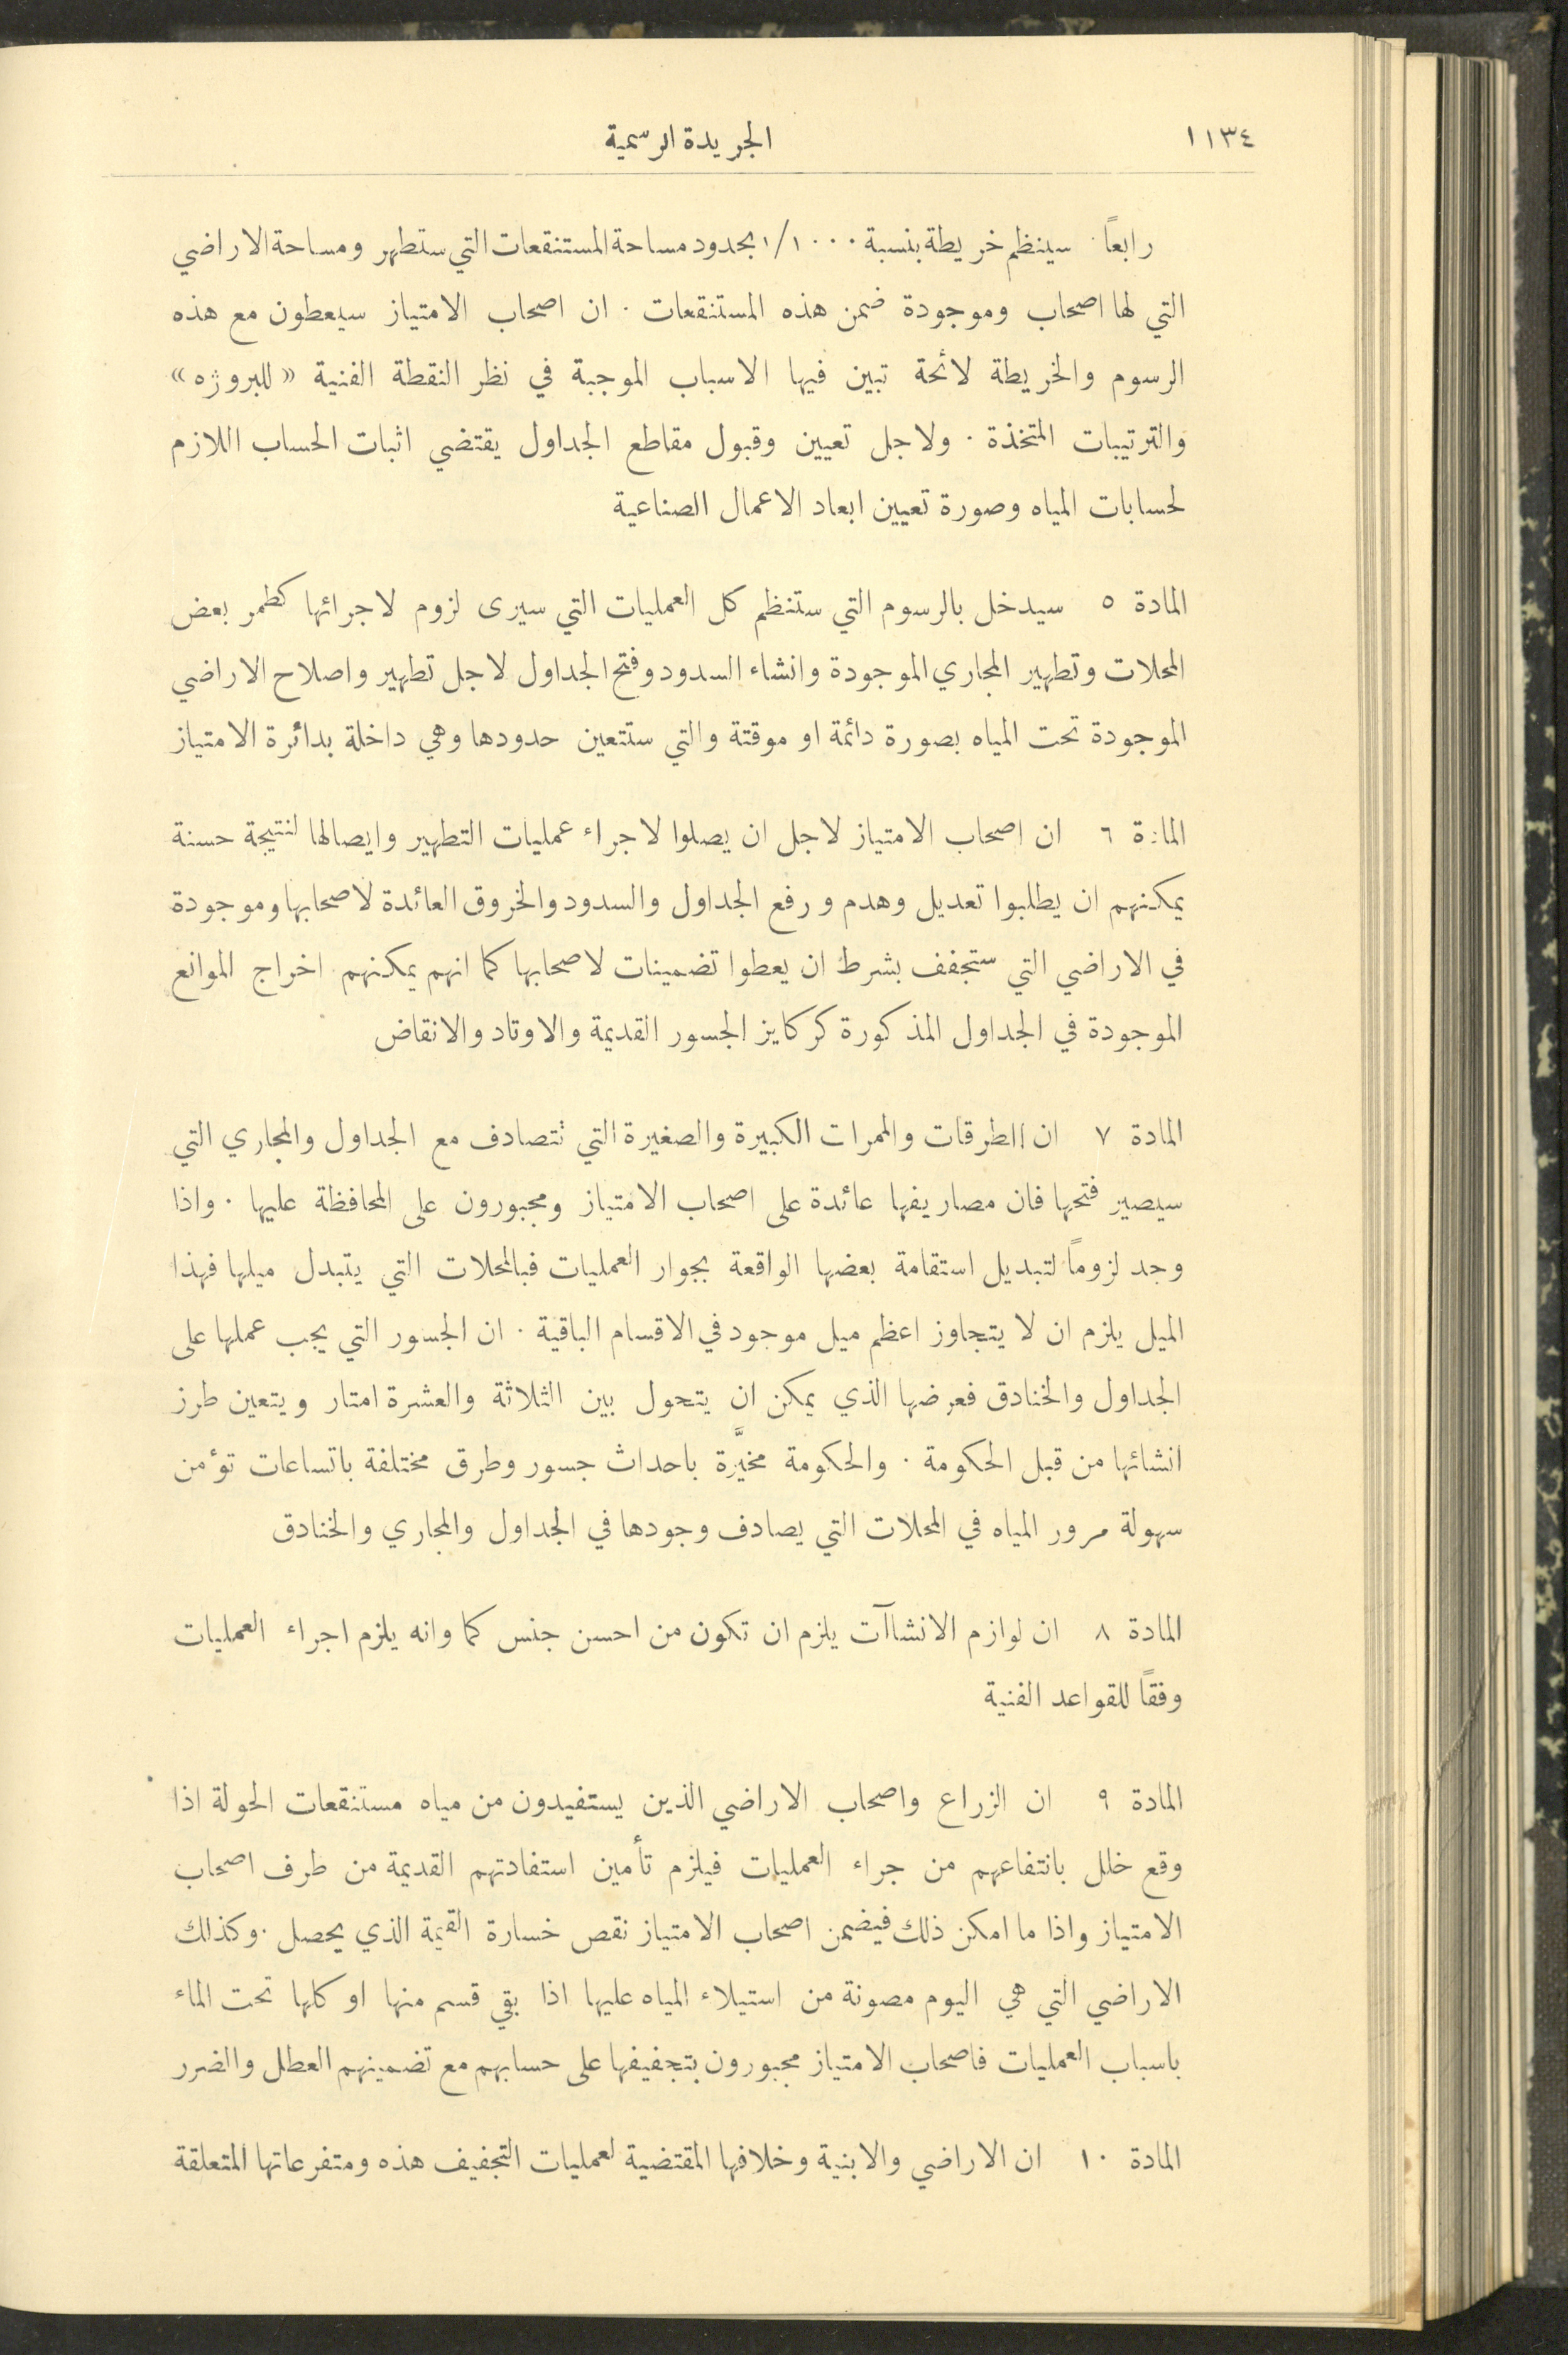 ١١٣٤
الجريدة الرسمية
رابعاً سينظم خريطة بنسبة ١/١٠٠٠ بحدود مساحة المستنقعات التي ستطهر ومساحة الاراضي
التي لها اصحاب وموجودة ضمن هذه المستنقعات . ان اصحاب الامتياز سيعطون مع هذه
الرسوم والخريطة لائحة تبين فيها الاسباب الموجبة في نظر النقطة الفنية «للبروژه»
والترتيبات المتخذة . ولاجل تعيين وقبول مقاطع الجداول يقتضي اثبات الحساب اللازم
لحسابات المياه وصورة تعيين ابعاد الاعمال الصناعية
المادة ٥ سيدخل بالرسوم التي ستنظم كل العمليات التي سيرى لزوم لاجرائها كطمر بعض
المحلات وتطهير المجاري الموجودة وانشاء السدود وفتح الجداول لاجل تطهير واصلاح الاراضي
الموجودة تحت المياه بصورة دائمة او موقتة والتي ستتعين حدودها وهي داخلة بدائرة الامتياز
المادة ٦ ان اصحاب الامتياز لاجل ان يصلوا لاجراء عمليات التطهير وايصالها لنتيجة حسنة
يمكنهم ان يطلبوا تعديل وهدم ورفع الجداول والسدود والخروق العائدة لاصحابها وموجودة
في الاراضي التي ستجفف بشرط ان يعطوا تضمينات لاصحابها كما انهم يمكنهم اخراج الموانع
الموجودة في الجداول المذكورة كركايز الجسور القديمة والاوتاد والانقاض
المادة ٧ ان الطرقات والممرات الكبيرة والصغيرة التي تتصادف مع الجداول والمجاري التي
سيصير فتحها فان مصاريفها عائدة على اصحاب الامتياز ومجبورون على المحافظة عليها . واذا
وجد لزوماً لتبديل استقامة بعضها الواقعة بجوار العمليات فبالمحلات التي يتبدل ميلها فهذا
الميل يلزم ان لا يتجاوز اعظم ميل موجود في الاقسام الباقية . ان الجسور التي يجب عملها على
الجداول والخنادق فعرضها الذي يمكن ان يتحول بين الثلاثة والعشرة امتار ويتعين طرز
انشائها من قبل الحكومة . والحكومة مخيَّرة باحداث جسور وطرق مختلفة باتساعات تؤمن
سهولة مرور المياه في المحلات التي يصادف وجودها في الجداول والمجاري والخنادق
المادة ٨ ان لوازم الانشاآت يلزم ان تكون من احسن جنس كما وانه يلزم اجراء العمليات
وفقاً للقواعد الفنية
المادة ٩ ان الزراع واصحاب الاراضي الذين يستفيدون من مياه مستنقعات الحولة اذا
وقع خلل بانتفاعهم من جراء العمليات فيلزم تأمين استفادتهم القديمة من طرف اصحاب
الامتياز واذا ما امكن ذلك فيضمن اصحاب الامتياز نقص خسارة القيمة الذي يحصل . وكذلك
الاراضي التي هي اليوم مصونة من استيلاء المياه عليها اذا بقي قسم منها او كلها تحت الماء
باسباب العمليات فاصحاب الامتياز مجبورون بتجفيفها على حسابهم مع تضمينهم العطل والضرر
المادة ١٠ ان الاراضي والابنية وخلافها المقتضية لعمليات التجفيف هذه ومتفرعاتها المتعلقة